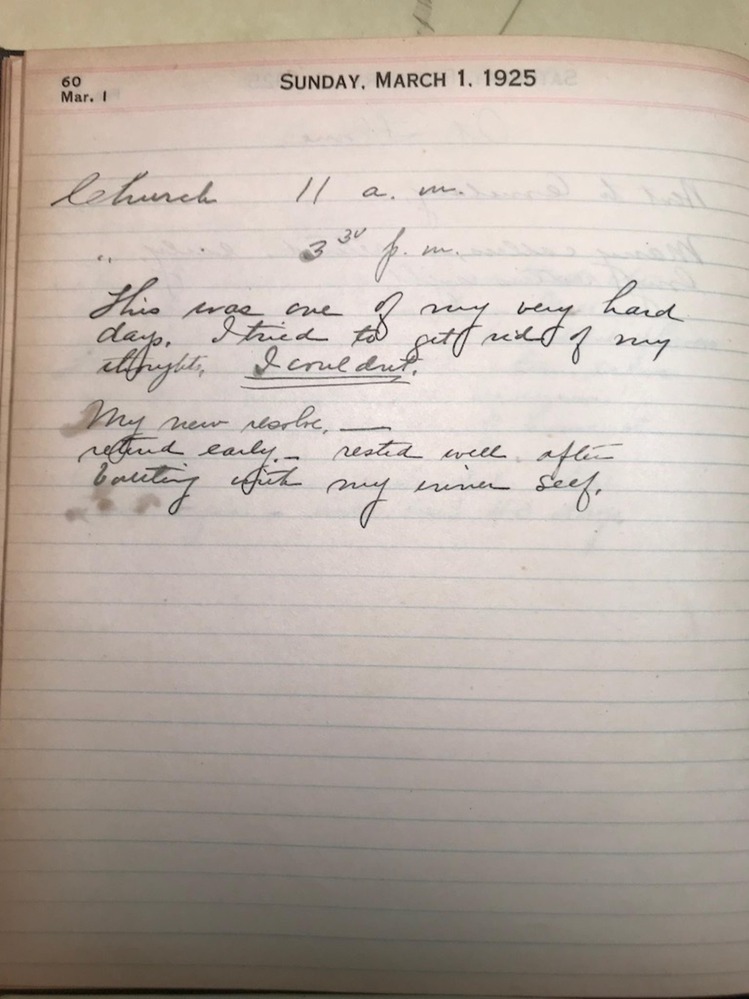 60
Mar. 1
SUNDAY, MARCH 1, 1925
Church 11 a. m.
" 3 30 p. m.
This was one of my very hard
days. I tried to get rid of my
thoughts, I couldnt.
My new resolve, —
retired early – rested well after
with my inner self.